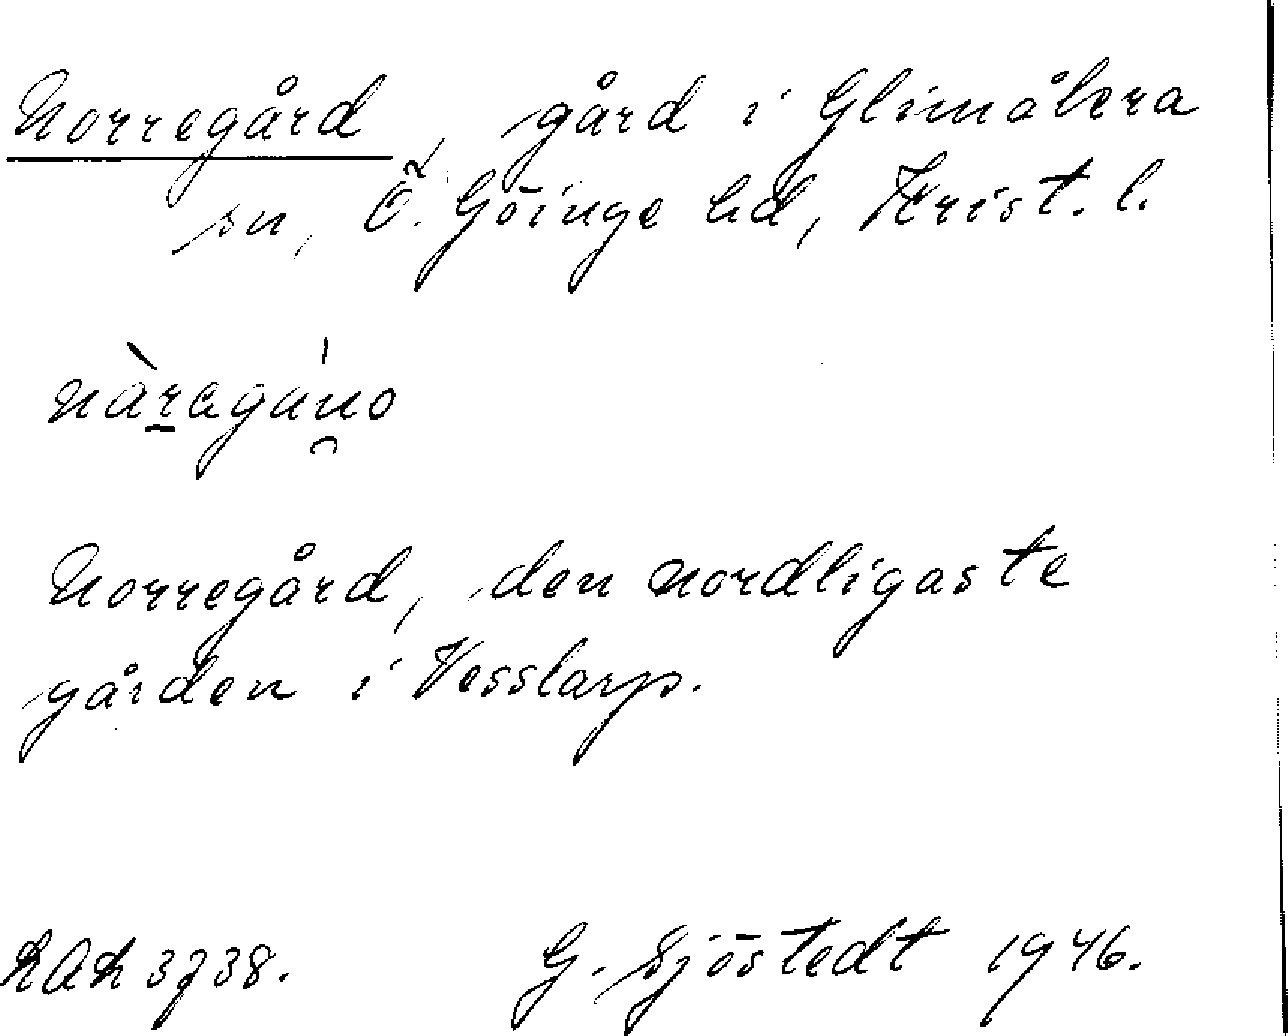 Norregård, gård i Glimåkra
sn, Ö. Göinge hd, Krist. l.
Norregård, den nordligaste
gården i Vesslarp.
LAL 3738.
G. Sjöstedt 1946.